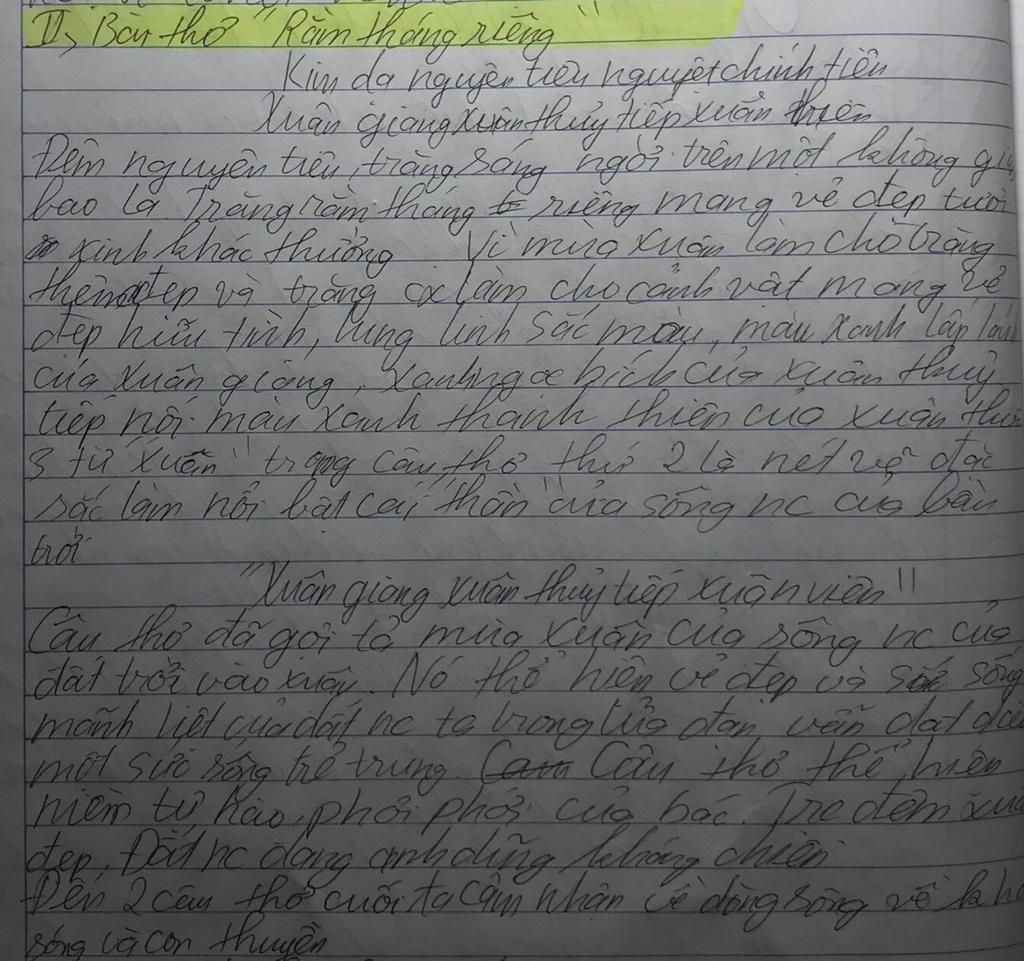 II, Bài thơ "Rằm tháng riêng"
Kim dạ nguyên tiêu nguyệt chính tiên
Xuân giang xuân thủy tiếp xuân thiên
Đêm nguyên tiêu, trăng sáng ngời trên một không gi
bao la. Trăng rằm tháng riêng mang vẻ đẹp tươi
xinh khác thường. Vì mùa xuân làm chờ trăng
thêm đẹp và trăng làm cho cảnh vật mang vẻ
đẹp hữu tình, lung linh sắc màu, màu xanh lấp lán
của xuân giang, xanh ngọc bích của xuân thuỷ
tiếp nối màu xanh thanh thiên của xuân thiê
3 từ "xuân" trong câu thơ thứ 2 là nét vẽ đặc
sắc làm nổi bật cái "thần" của sông nc của bầu
trời
"Xuân giang xuân thuỷ tiếp xuân viên"
Câu thơ đã gợi tả mùa xuân của sông nc của
đất trời vào xuân. Nó thể hiện vẻ đẹp và sức sống
mãnh liệt của đất nc ta trong lửa đạn vẫn dạt dào
một sức sống trẻ trung. Câu thơ thể hiện
niềm tự hào, phơi phới của bác. Tre đêm xuâ
đẹp. Đất nc đang anh dũng kháng chiến
Đến 2 câu thơ cuối ta cảm nhận về dòng sông về khó
sóng và con thuyền